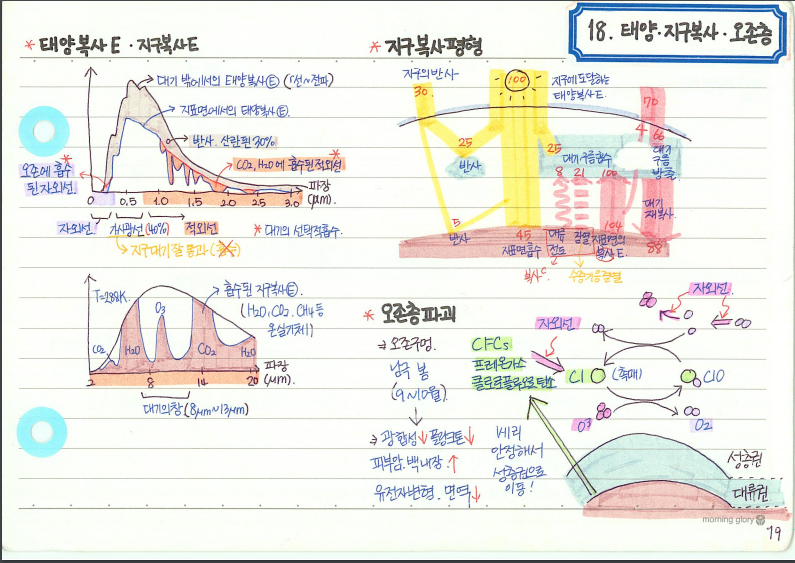 18. 태양·지구복사·오존층
* 태양복사E·지구복사E
대기 밖에서의 태양복사Ⓔ (γ선~전파)
지표면에서의 태양복사Ⓔ.
반사. 산란된 30%
CO₂, H₂O에 흡수된 적외선
오존에 흡수
된 자외선.
0 0.5 1.0 1.5 2.0 2.5 3.0
파장
(μm).
자외선. 가시광선(40%) 적외선
* 대기의 선택적흡수.
→ 지구대기 잘 통과
T=288K.
흡수된 지구복사Ⓔ.
(H₂O, CO₂, CH₄ 등
온실기체)
CO₂ H₂O O₃ CO₂ H₂O
2 8 14 20
파장
(μm).
대기의창 (8μm~13μm)
* 지구복사평형
지구의 반사
30.
100
지구에 도달하는
태양복사E.
70
4 66
25
반사
25
대기구름흡수
대기
구름
방출
8 21 100
대기
재복사.
5
반사
45
지표면흡수
대류
전도
잠열
104
지표면의
복사E.
88
복사C
수증기응결열
* 오존층파괴
⇒ 오존구멍.
남극 봄
(9~10월)
⇒ 광합성↓ 플랑크톤↓
피부암. 백내장.↑
유전자변형. 면역↓
CFCs
프레온가스
클로로플루오로탄소
자외선
자외선.
Cl (촉매) ClO
O₃ O₂
매우
안정해서
성층권으로
이동!
성층권
대류권
morning glory
19